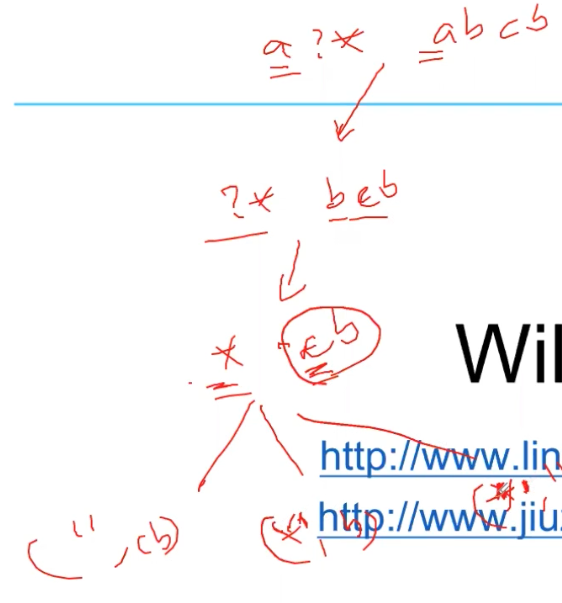 a ? * abcb
? * bcb
* cb
Wil
http://www.lin
http://www.jiuz
("", cb)